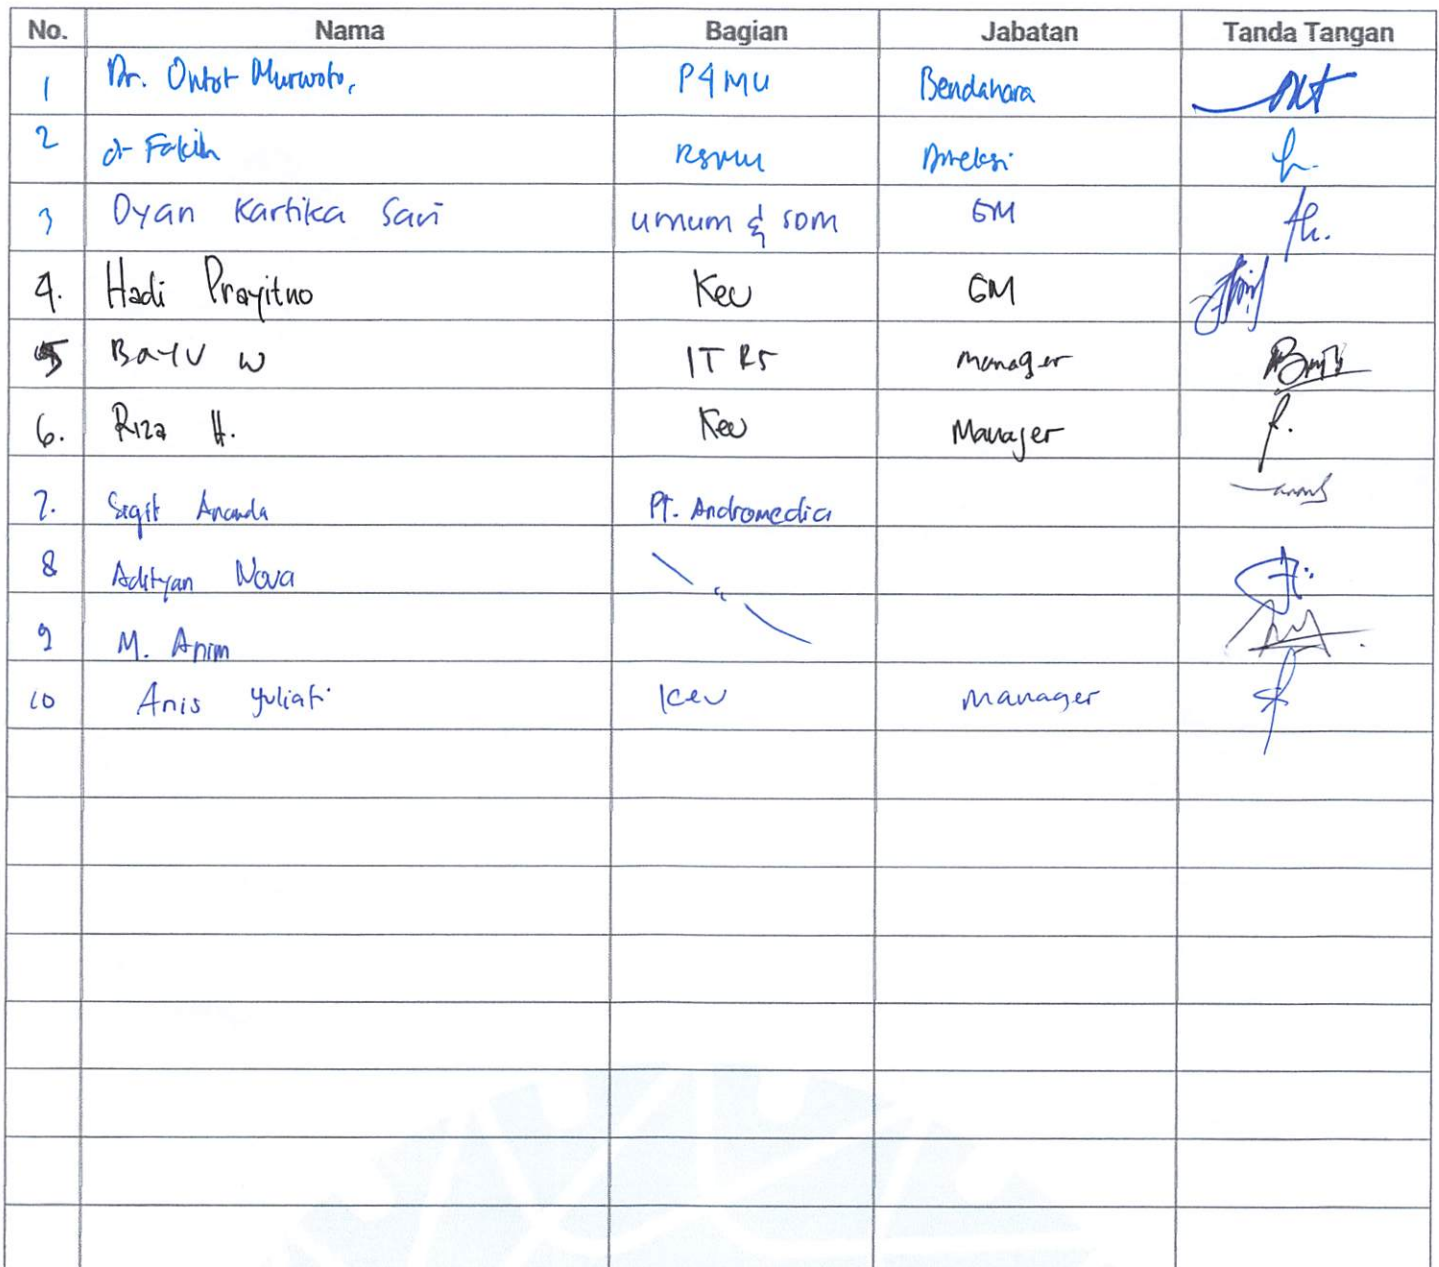 No. Nama Bagian Jabatan Tanda Tangan
1 Dr. Ontot Murwoto, P4MU Bendahara
2 dr Fakih RSMU Direksi
3 Dyan Kartika Sari umum & SDM GM
4. Hadi Prayitno Keu GM
5 Bayu W IT RS Manager
6. Riza H. Keu Manajer
7. Sigit Ananda Pt. Andromedia
8 Adityan Nova "
9 M. Anim
10 Anis Yuliati Keu Manager